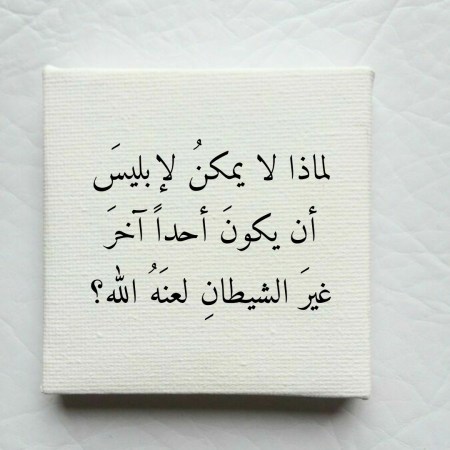 لماذا لا يمكنُ لإبليسَ
أن يكونَ أحداً آخرَ
غيرَ الشيطانِ لعنَهُ الله؟